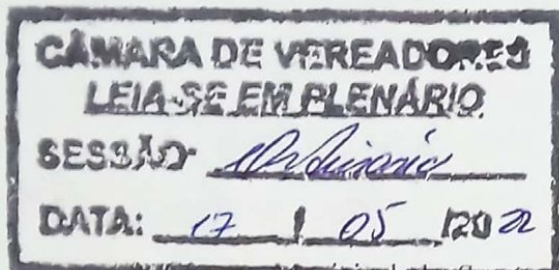 CÂMARA DE VEREADORES
LEIA-SE EM PLENÁRIO
SESSÃO: Ordinária
DATA: 17 / 05 /2022